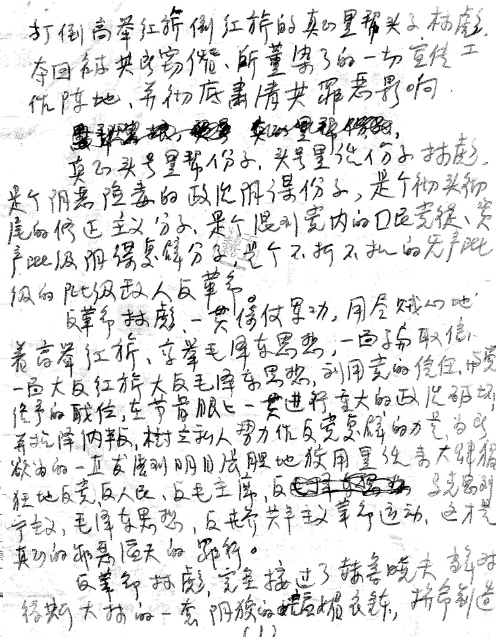 打倒高举红旗倒红旗的真正黑帮头子林彪.
夺回被其所窃僭、所董染了的一切宣传工
作阵地、并彻底肃清其罪恶影响.
真正头号黑帮份子、头号黑线份子林彪.
是个阴恶险毒的政治阴谋份子, 是个彻头彻
尾的修正主义分子、是个混到党内的口民党徒、资
产阶级阴谋复辟分子, 是个不折不扣的无产阶
级的阶级敌人反革命。
反革命林彪、一贯倚仗军功, 用尽贼心地
着高举红旗、高举毛泽东思想, 一面骗取信
一面大反红旗大反毛泽东思想, 利用党的信任、
给予的职位, 在节骨眼上一贯进行重大的政治破坏,
并招降内叛, 树立私人势力作反党复辟的力 为所
欲为的一直发展到明目张胆地放用黑线来大肆猖
狂地反党反人民、反毛主席, 反 马克思列
宁主义, 毛泽东思想, 反共产共产主义革命运动, 这才是
真正的邪恶滔天的罪行。
反革命林彪, 完全接过了赫鲁晓夫
一套阴 衣钵,
(1)